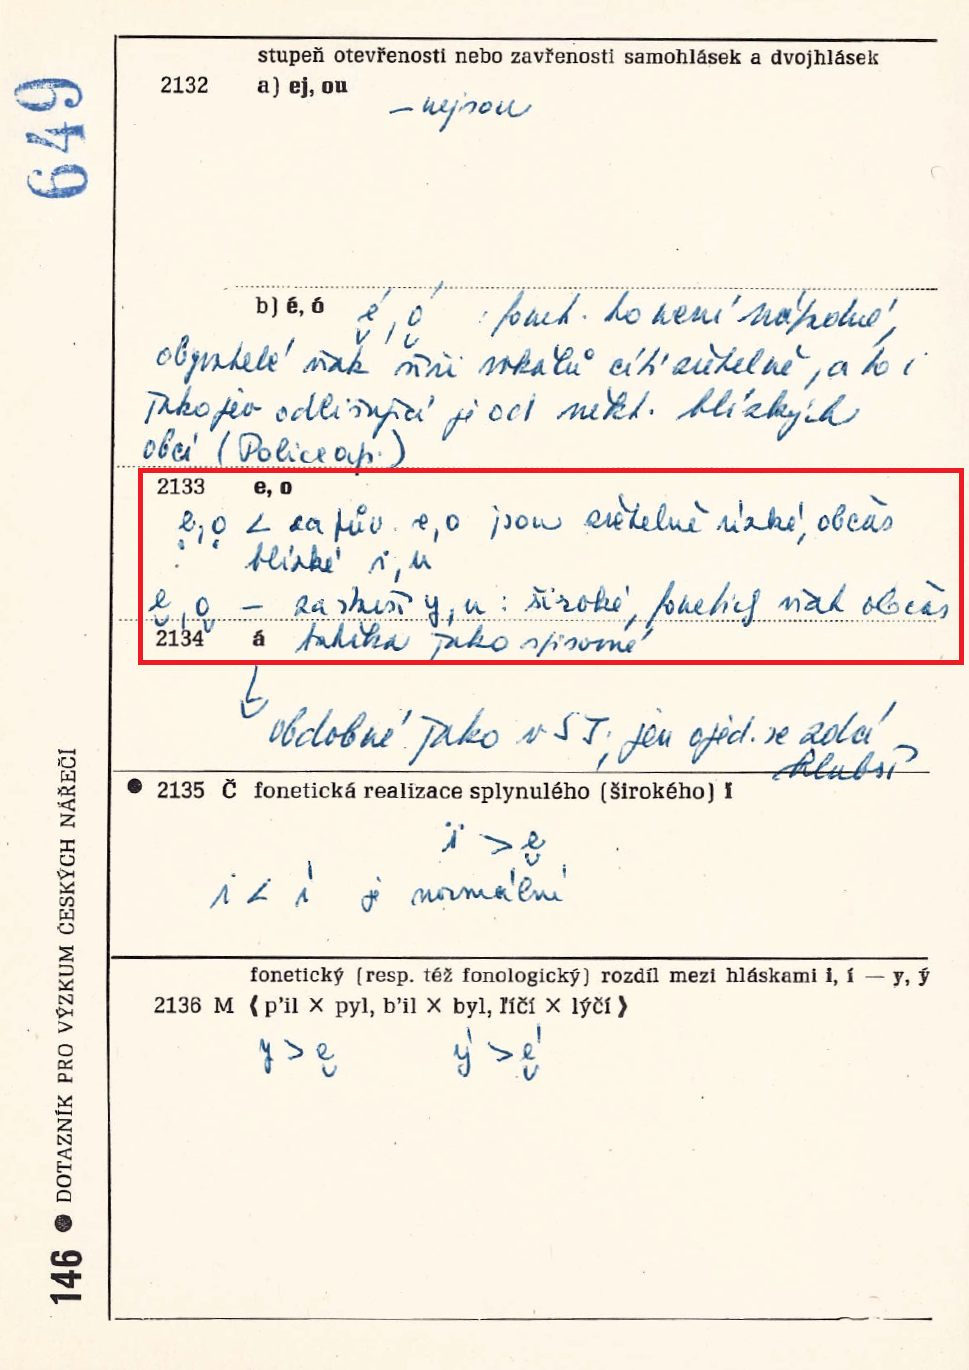 stupeň otevřenosti nebo zavřenosti samohlásek a dvojhlásek
2132 a) ej, ou
– nejsou
649
b) é, ó é̬, ó̬ : fonet. to není nápadné,
obyvatelé však šíři vokálů cítí zřetelně, a to i
jako jev odlišující je od někt. blízkých
obcí (Police ap.)
2133 e, o
ẹ, ọ < za pův. e, o jsou zřetelně úzké, občas
blízké i, u
e̬, o̬ – za starší y, u : široké, foneticky však občas
2134 á takřka jako spisovné
obdobné jako v SJ, jen ojed. se zdá
hlubší
2135 Č fonetická realizace splynulého (širokého) ī
i > e̬
i < í je normální
fonetický (resp. též fonologický) rozdíl mezi hláskami i, í — y, ý
2136 M ⟨p’il X pyl, b’il X byl, l̃íčí X lýčí⟩
y > e̬ ý > é̬
146 ● DOTAZNÍK PRO VÝZKUM ČESKÝCH NÁŘEČÍ